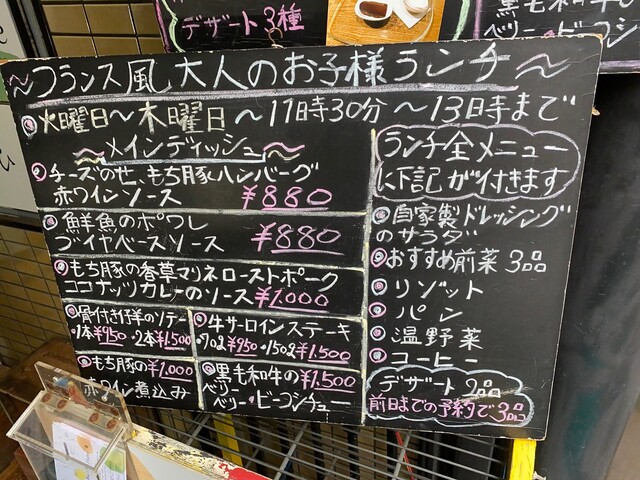 デザート3種
黒毛和牛の
ベリー・ビーコシ
〜フランス風 大人のお子様ランチ〜
火曜日〜木曜日 〜11時30分 〜13時まで
〜メインディッシュ〜
チーズのせ、もち豚ハンバーグ
赤ワインソース ¥880
鮮魚のポワレ
ブイヤベースソース ¥880
もち豚の香草マリネローストポーク
ココナッツカレーのソース ¥1.000
骨付き仔羊のソテー
・1本¥950 ・2本¥1.500
牛サーロインステーキ
・70z¥950 ・150z¥1.500
もち豚の ¥1.000
赤ワイン煮込み
黒毛和牛の ¥1.500
ベリー
ベリー・ビーコシチュー
ランチ全メニュー
に下記が付きます
自家製ドレッシング
のサラダ
おすすめ前菜 3品
リゾット
パン
温野菜
コーヒー
デザート 2品
前日までの予約で3品